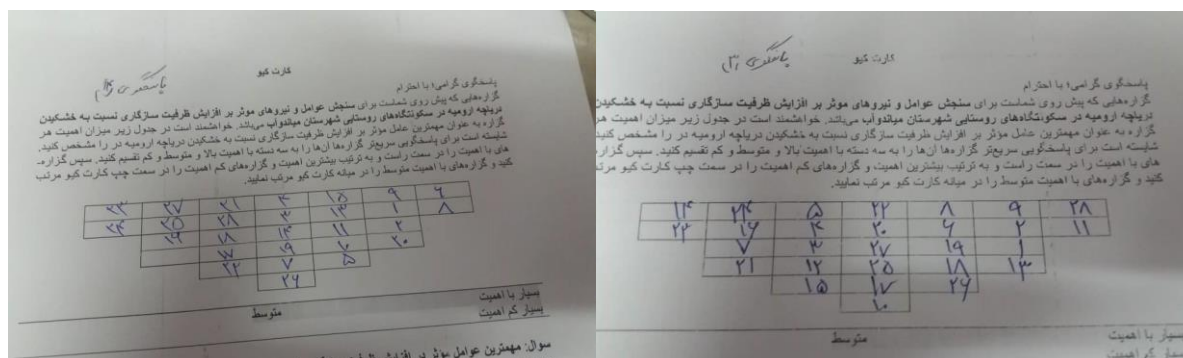 کارت کیو
پاسخگوی گرامی؛ با احترام
گزاره‌هایی که پیش روی شماست برای سنجش عوامل و نیروهای موثر بر افزایش ظرفیت سازگاری نسبت به خشکیدن
دریاچه ارومیه در سکونتگاه‌های روستایی شهرستان میاندوآب می‌باشد. خواهشمند است در جدول زیر میزان اهمیت هر
گزاره به عنوان مهمترین عامل موثر بر افزایش ظرفیت سازگاری نسبت به خشکیدن دریاچه ارومیه در را مشخص کنید.
شایسته است برای پاسخگویی سریع‌تر گزاره‌ها آن‌ها را به سه دسته با اهمیت بالا و متوسط و کم تقسیم کنید. سپس گزاره-
های با اهمیت را در سمت راست و به ترتیب بیشترین اهمیت و گزاره‌های کم اهمیت را در سمت چپ کارت کیو مرتب
کنید و گزاره‌های با اهمیت متوسط را در میانه کارت کیو مرتب نمایید.
۶ ۹ ۱۵ ۴ ۲۱ ۲۷ ۲۳
۸ ۱ ۱۳ ۳ ۲۸ ۲۵ ۲۴
۲ ۱۱ ۱۴ ۱۸
۲۰ ۱۰ ۱۹ ۱۷
۵ ۷ ۲۲
۲۶
بسیار با اهمیت
متوسط
بسیار کم اهمیت
سوال: مهمترین عوامل موثر در
کارت کیو
پاسخگوی گرامی؛ با احترام
گزاره‌هایی که پیش روی شماست برای سنجش عوامل و نیروهای موثر بر افزایش ظرفیت سازگاری نسبت به خشکیدن
دریاچه ارومیه در سکونتگاه‌های روستایی شهرستان میاندوآب می‌باشد. خواهشمند است در جدول زیر میزان اهمیت هر
گزاره به عنوان مهمترین عامل موثر بر افزایش ظرفیت سازگاری نسبت به خشکیدن دریاچه ارومیه در را مشخص کنید.
شایسته است برای پاسخگویی سریع‌تر گزاره‌ها آن‌ها را به سه دسته با اهمیت بالا و متوسط و کم تقسیم کنید. سپس گزاره-
های با اهمیت را در سمت راست و به ترتیب بیشترین اهمیت، و گزاره‌های کم اهمیت را در سمت چپ کارت کیو مرتب
کنید و گزاره‌های با اهمیت متوسط را در میانه کارت کیو مرتب نمایید.
۲۸ ۹ ۸ ۲۲ ۵ ۲۴ ۱۴
۱۱ ۲ ۶ ۲۰ ۴ ۱۶ ۲۳
۱ ۱۹ ۲۷ ۳ ۷
۱۳ ۱۸ ۲۵ ۱۲ ۲۱
۲۶ ۱۷ ۱۵
۱۰
بسیار با اهمیت
متوسط
بسیار کم اهمیت